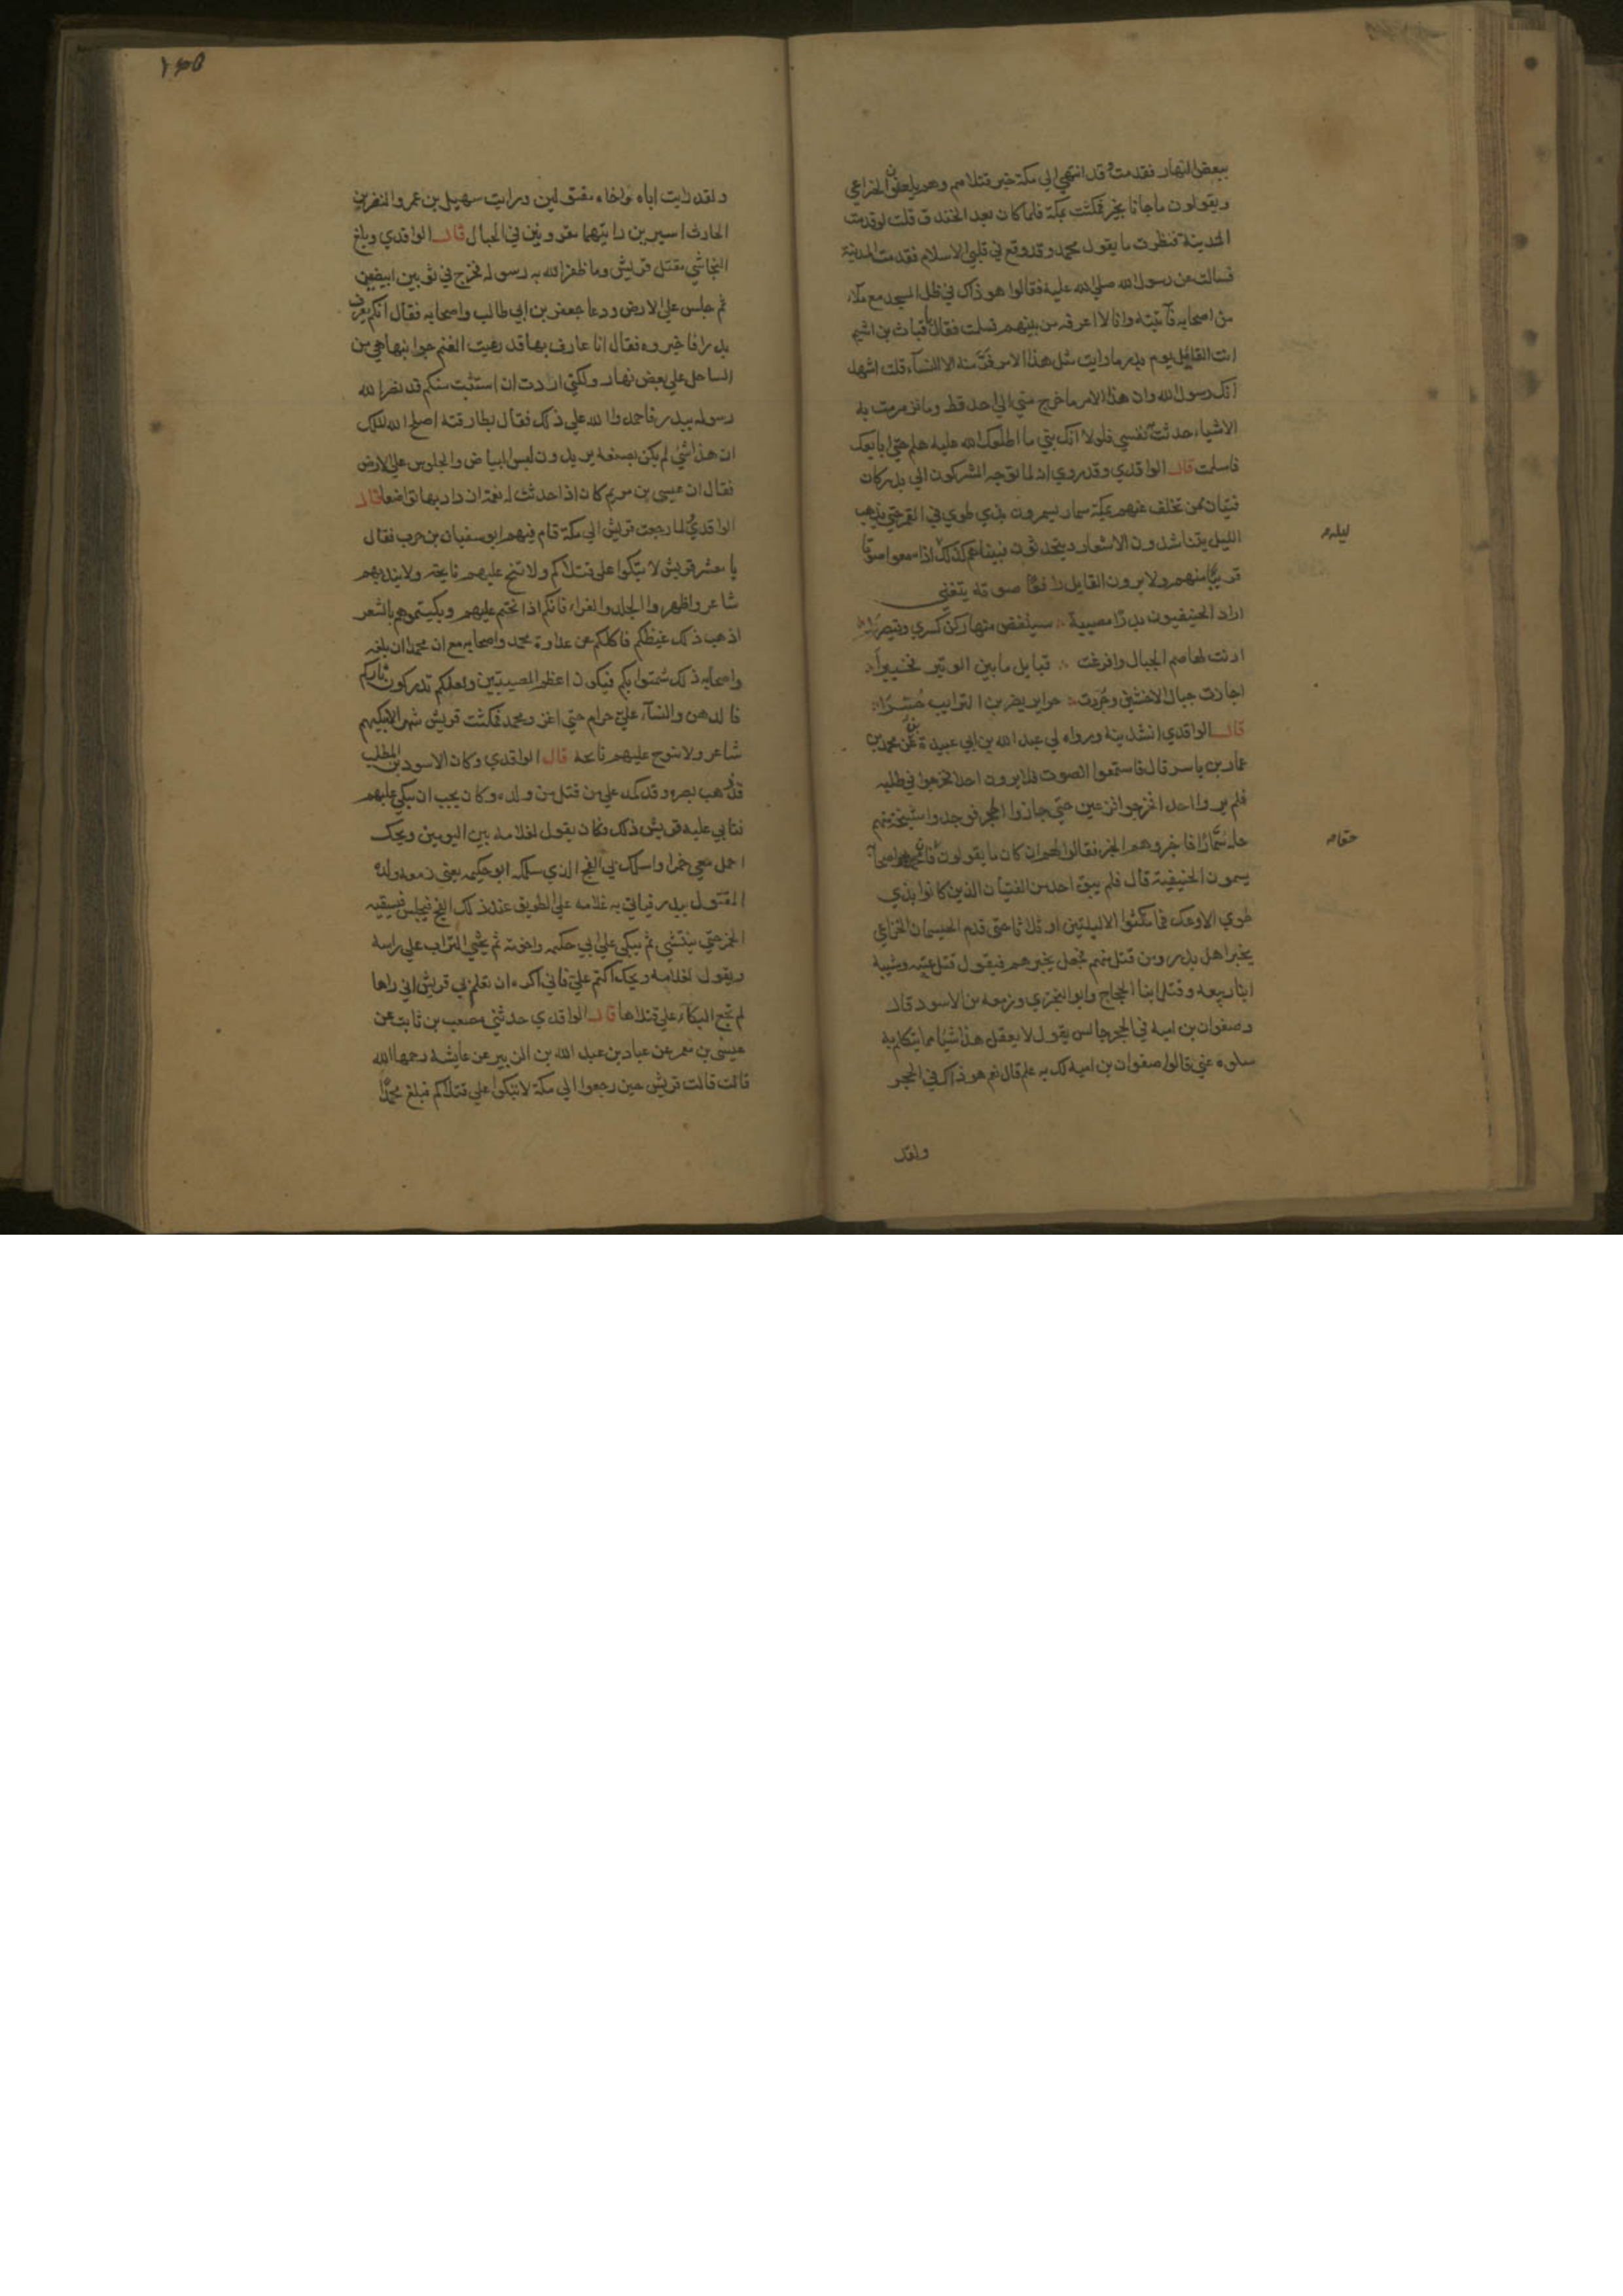 ببعض النهار فقدمت وقد انتهي الي مكة خبر قتلاهم وهم يلعنون الخزاعي
ويقولون ما جانا بخير فمكثت بمكة فلما كان بعد الخندق قلت لو قدمت
المدينة فنظرت ما يقول محمد وقد وقع في قلبي الاسلام فقدمت المدينة
فسالت عن رسول الله صلي الله عليه فقالوا هو ذاك في ظل المسجد مع ملاء
من اصحابه فاتيته وانا لا اعرفه من بينهم فسلمت فقال يا قباث بن اشيم
انت القايل يوم بدر ما رايت مثل هذا الامر فر منه الا النساء قلت اشهد
انك رسول الله وان هذا الامر ما خرج مني الي احد قط وما تزمزمت به
الا شياء حدثت نفسي فلولا انك نبي ما اطلعك الله عليه هلم حتي ابايعك
فاسلمت قال الواقدي وقد روي انه لما توجه المشركون الي بدر كان
فتيان ممن تخلف عنهم بمكة سمار يسمرون بذي طوي في القمر حتي يذهب
الليل يتناشدون الاشعار ويتحدثون فبيناهم كذلك اذ سمعوا صوتا
ليله م
قريبا منهم ولا يرون القايل رافعا صوته يتغني
ازاد الحنيفيون بدرا مصيبة سينقض منها ركن كسري وقيصرا
ارنت لها صم الجبال وافزعت قبايل ما بين الوتير فخيبرا
اجازت جبال الاخشبين وجردت حراير يضربن الترايب حسرا
قال الواقدي انشدنيه ورواه لي عبد الله بن ابي عبيدة عن محمد بن
عمار بن ياسر قال فاستمعوا الصوت فلا يرون احدا فخرجوا في طلبه
فلم يروا احدا فخرجوا فزعين حتي جازوا الحجر فوجدوا مشيخة منهم
جلة سمارا فاخبروهم الخبر فقالوا لهم ان كان ما يقولون
حقا م
يسمون الحنيفية قال فلم يبق احد من الفتيان الذين كانوا بذي
طوي الا وعك فما مكثوا الا ليلتين او ثلاثا حتي قدم الحيسمان الخزاعي
يخبر اهل بدر ومن قتل منهم فجعل يخبرهم فيقول قتل عتبه وشيبه
ابنا ربيعه وقتل ابنا الحجاج وابو البختري وزمعه بن الاسود قال
وصفوان بن اميه في الحجر جالس يقول لا يعقل هذا شيا مما يتكلم به
سلوه عني قالوا صفوان بن اميه لك به علم قال نعم هو ذاك في الحجر
ولقد
١٣٥
ولقد رايت اباه واخاه مقتولين ورايت سهيل بن عمرو والنضر بن
الحارث اسيرين رايتهما مقرونين في الحبال قال الواقدي وبلغ
النجاشي مقتل قريش وما ظفر الله به رسوله فخرج في ثوبين ابيضين
ثم جلس علي الارض ودعا جعفر بن ابي طالب واصحابه فقال ايكم يعرف
بدرا فاخبروه فقال انا عارف بها قد رعيت الغنم جوانبها هي من
الساحل علي بعض نهار ولكني اردت ان استثبت منكم قد نصر الله
رسوله ببدر فاحمدوا الله علي ذلك فقال بطارقته اصلح الله الملك
ان هذا شي لم يكن تصنعه يريدون لبس البياض والجلوس علي الارض
فقال ان عيسي بن مريم كان اذا حدثت له نعمة ازداد بها تواضعا قال
الواقدي لما رجعت قريش الي مكة قام فيهم ابو سفيان بن حرب فقال
يا معشر قريش لا تبكوا علي قتلاكم ولا تنح عليهم نايحة ولا يندبهم
شاعر واظهروا الجلد والعزاء فانكم اذا نحتم عليهم وبكيتموهم بالشعر
اذهب ذلك غيظكم فاكلكم عن عداوة محمد واصحابه مع ان محمدا ان بلغه
واصحابه ذلك شمتوا بكم فيكون اعظم المصيبتين ولعلكم تدركون ثاركم
فالدهن والنساء علي حرام حتي اغزو محمد فمكثت قريش شهرا لا يبكيهم
شاعر ولا تنوح عليهم نايحة قال الواقدي وكان الاسود بن المطلب
قد ذهب بصره وقد كمد علي من قتل من ولده وكان يحب ان يبكي عليهم
فتابي عليه قريش ذلك فكان يقول لغلامه بين اليومين ويحك
احمل معي خمرا واسلك بي الفج الذي سلكه ابو حكيمه يعني زمعه ولده
المقتول ببدر فياتي به غلامه علي الطريق عند ذلك الفج فيجلس فيسقيه
الخمر حتي ينتشي ثم يبكي علي ابي حكيمه واخوته ثم يحثي التراب علي راسه
ويقول لغلامه ويحك اكتم علي فاني اكره ان تعلم بي قريش اني اراها
لم تجمع البكاء علي قتلاها قال الواقدي حدثني مصعب بن ثابت عن
عيسي بن معمر عن عباد بن عبد الله بن الزبير عن عايشة رحمها الله
قالت قالت قريش حين رجعوا الي مكة لا تبكوا علي قتلاكم فيبلغ محمدا